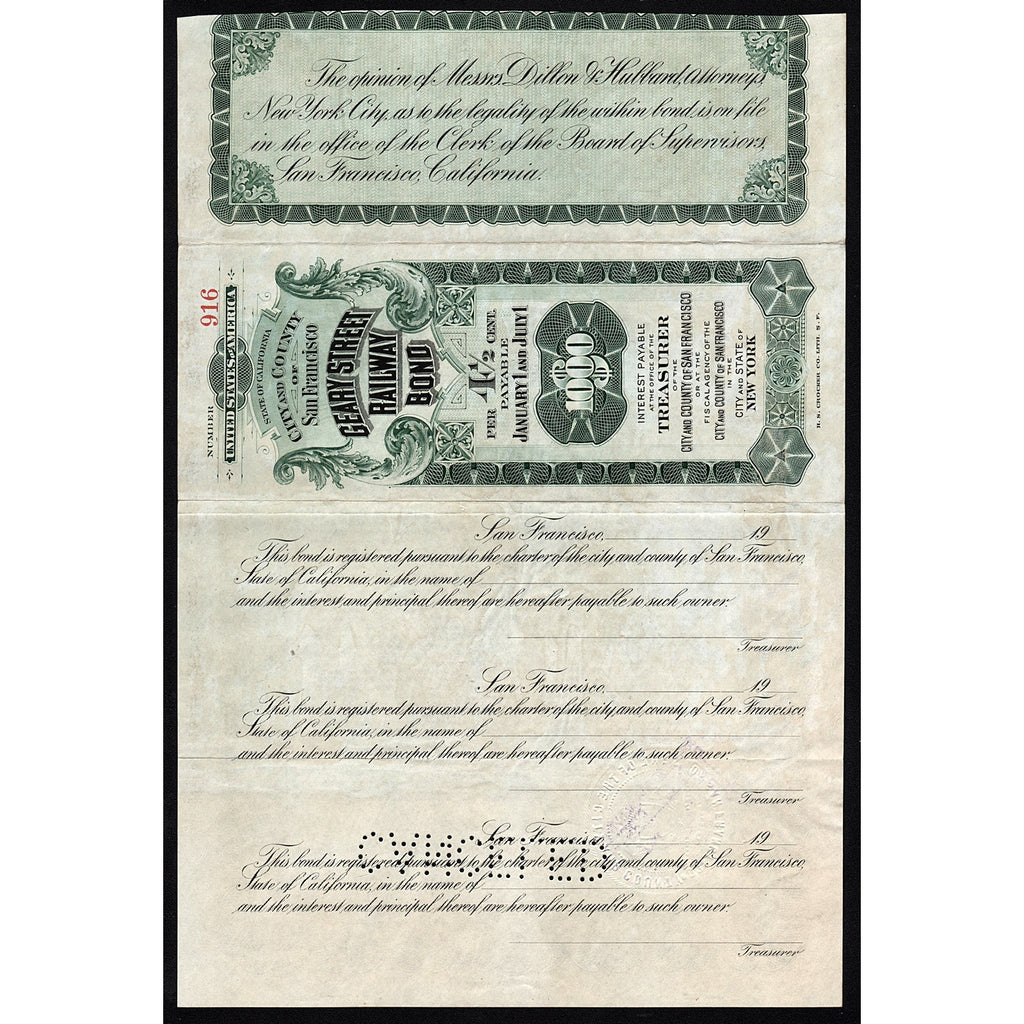 The opinion of Messrs. Dillon & Hubbard, Attorneys,
New York City, as to the legality of the within bond, is on file
in the office of the Clerk of the Board of Supervisors,
San Francisco, California.
NUMBER 916
UNITED STATES OF AMERICA
STATE OF CALIFORNIA
CITY AND COUNTY
OF
San Francisco
GEARY STREET
RAILWAY
BOND
PER 4½ CENT.
PAYABLE
JANUARY 1 AND JULY 1
$1000$
INTEREST PAYABLE
AT THE OFFICE OF THE
TREASURER
OF THE
CITY AND COUNTY OF SAN FRANCISCO
OR AT THE
FISCAL AGENCY OF THE
CITY AND COUNTY OF SAN FRANCISCO
IN THE
CITY AND STATE OF
NEW YORK
H. S. CROCKER CO. LITH. S. F.
San Francisco, 19
This bond is registered pursuant to the charter of the city and county of San Francisco,
State of California, in the name of
and the interest and principal thereof are hereafter payable to such owner.
Treasurer
San Francisco, 19
This bond is registered pursuant to the charter of the city and county of San Francisco,
State of California, in the name of
and the interest and principal thereof are hereafter payable to such owner.
Treasurer
San Francisco, 19
This bond is registered pursuant to the charter of the city and county of San Francisco,
State of California, in the name of
and the interest and principal thereof are hereafter payable to such owner.
Treasurer